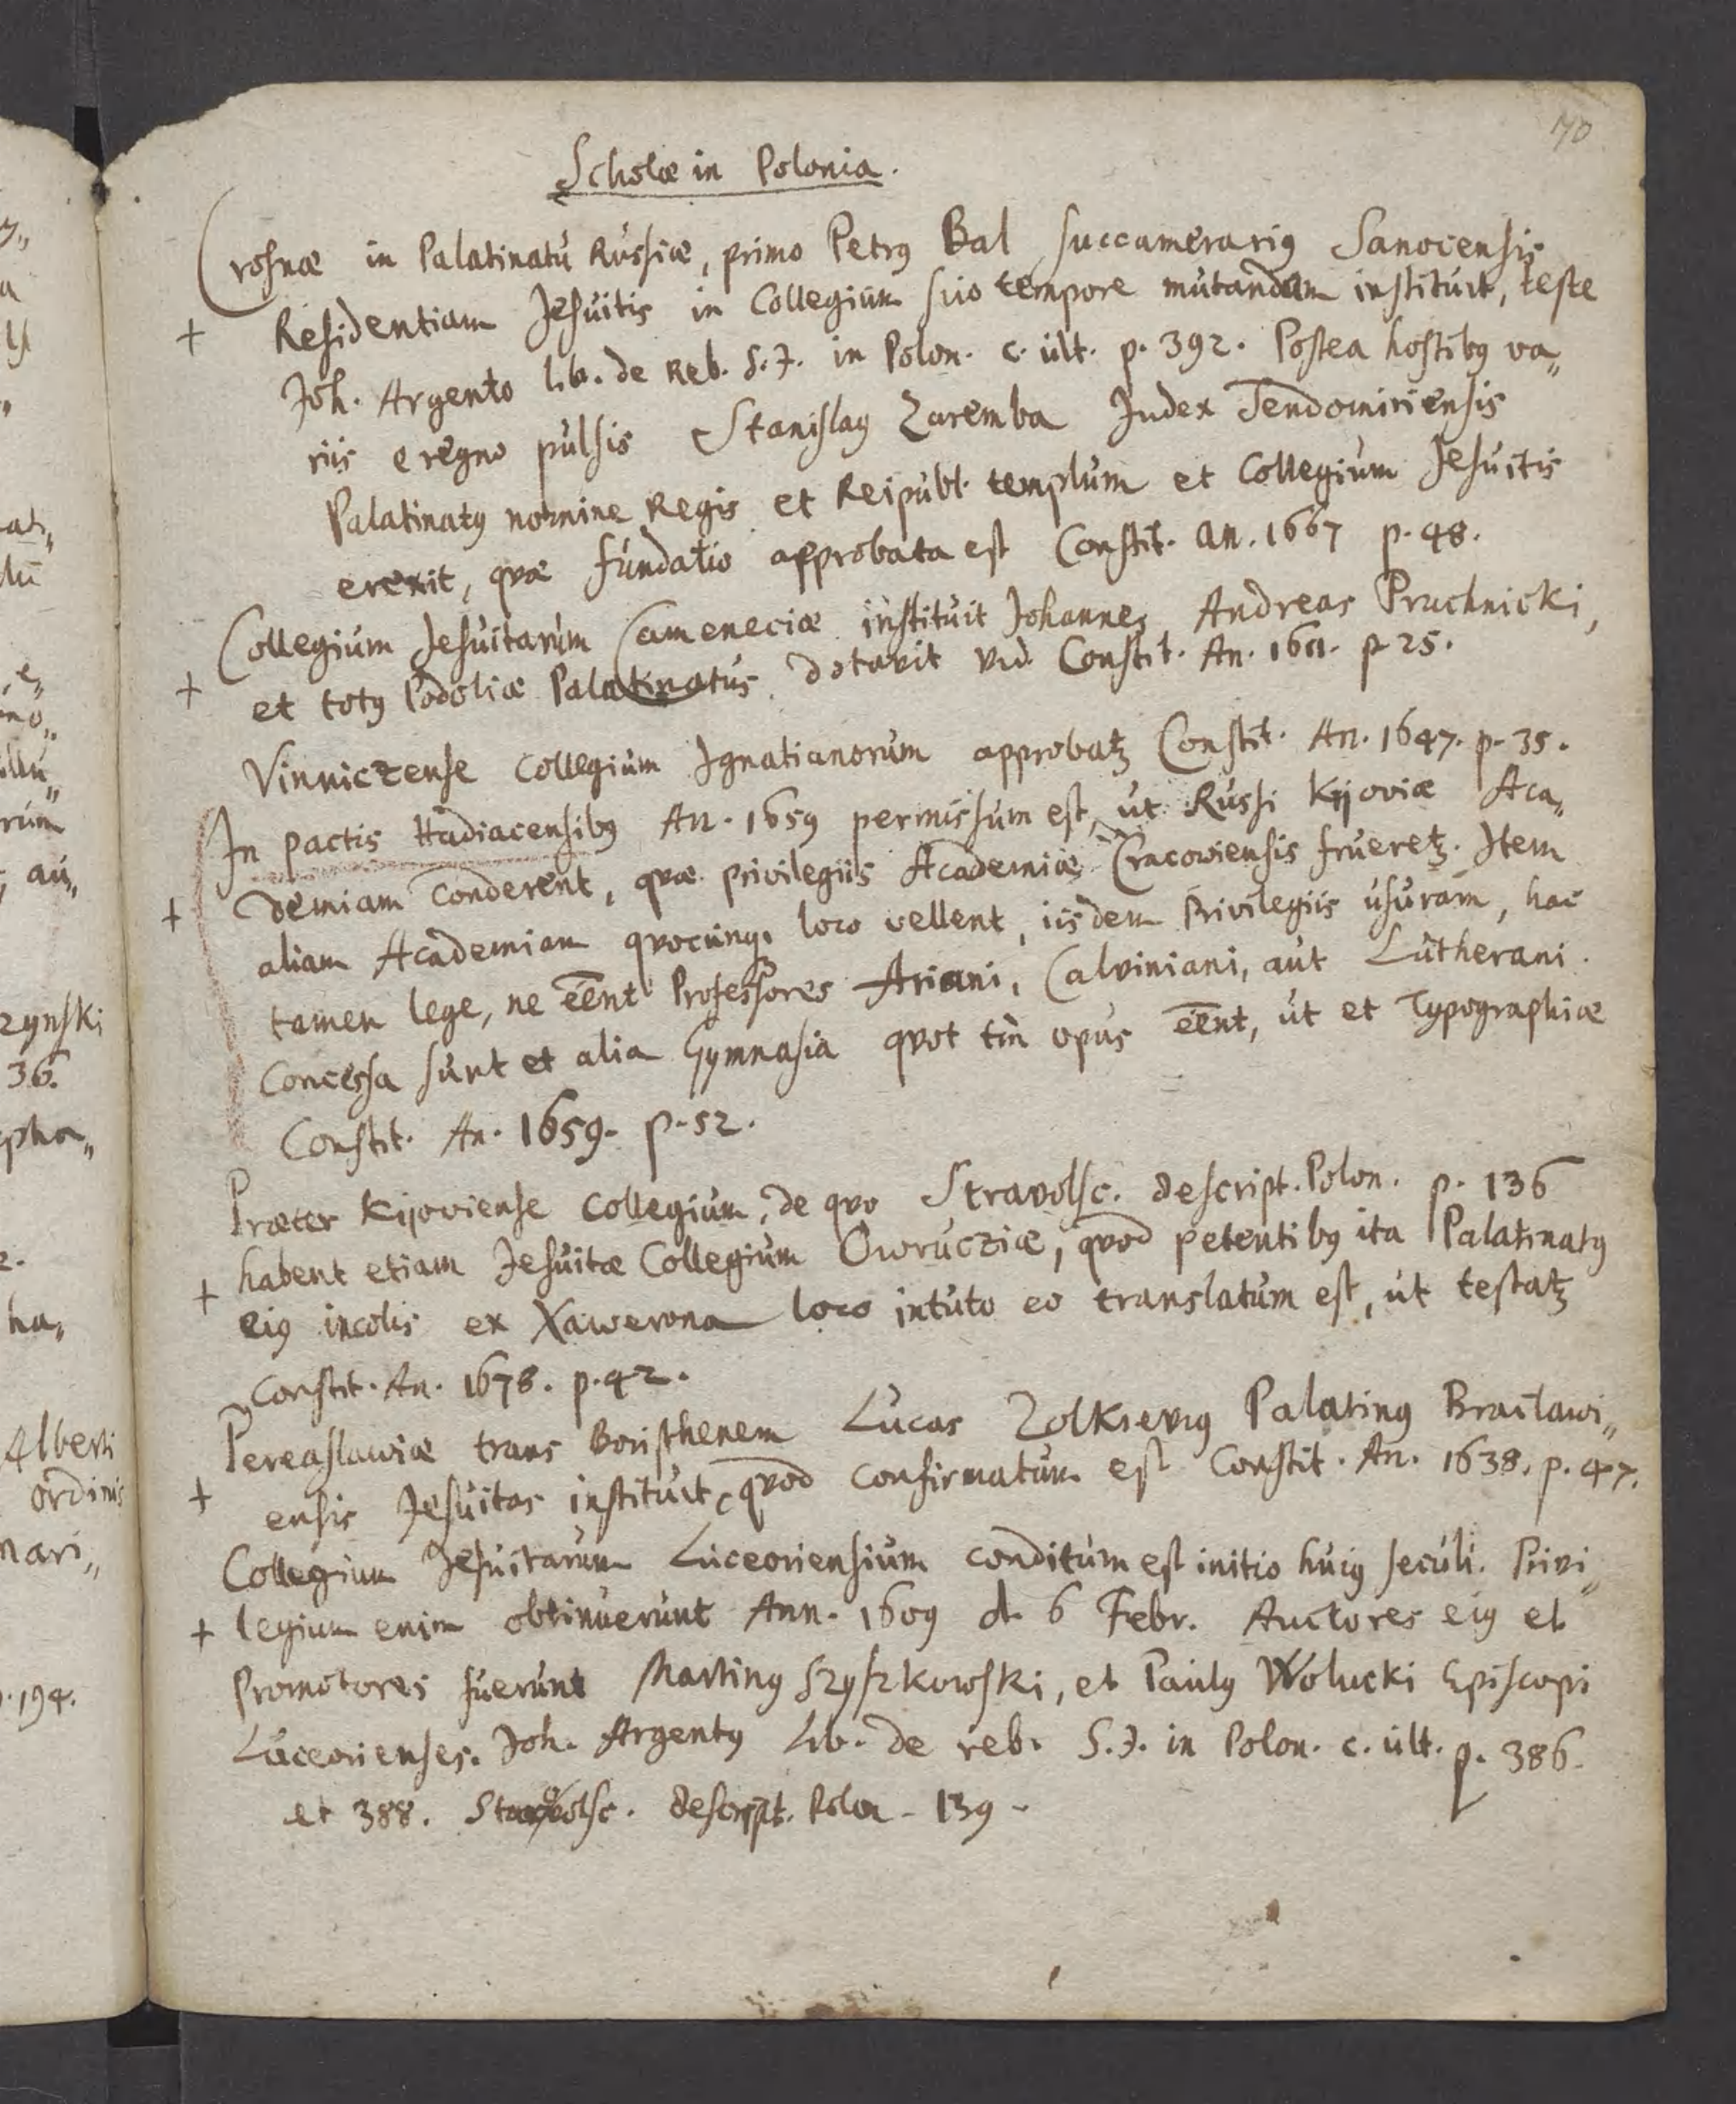 70
Scholæ in Polonia.
Crosnæ in Palatinatu Russiæ, primo Petrꝰ Bal succamerariꝰ Sanocensis
+ Residentiam Jesuitis in Collegium suo tempore mutandam instituit, teste
Joh. Argento lib. de Reb. S.J. in Polon. c. ult. p. 392. Postea hostibꝰ va„
riis e regno pulsis Stanislaꝰ Zaremba Judex Sendomiriensis
Palatinatꝰ nomine Regis et Reipubl. templum et Collegium Jesuitis
erexit, qvæ fundatio approbata est Constit. an. 1667 p. 48.
Collegium Jesuitarum Cameneciæ instituit Johannes Andreas Pruchnicki,
+ et totꝰ Podoliæ Palatinatus dotavit vid. Constit. An. 1611. p 25.
Vinniczense Collegium Ignatianorum approbatꝫ Constit. An. 1647. p. 35.
In pactis Hadiacensibꝰ An. 1659 permissum est, ut Russi Kijoviæ Aca„
+ demiam conderent, qvæ privilegiis Academiæ Cracowiensis frueretꝫ. Item
aliam Academiam qvocunqꝫ loco vellent, iisdem Privilegiis usuram, hac
tamen lege, ne eēnt Professores Ariani, Calviniani, aut Lutherani.
Concessa sunt et alia Gymnasia qvot tm̄ opus eēnt, ut et Typographiæ
Constit. An. 1659. p. 52.
Præter Kijoviense Collegium, de qvo Stravolsc. descript. Polon. p. 136
+ habent etiam Jesuitæ Collegium Owrucziæ, qvod petentibꝰ ita Palatinatꝰ
eiꝰ incolis ex Xawerona loco intuto eo translatum est, ut testatꝫ
Constit. An. 1678. p. 42.
Pereaslawiæ trans Boristhenem Lucas Zolkieviꝰ Palatinꝰ Braclawi„
+ ensis Jesuitas instituit, qvod confirmatum est Constit. An. 1638. p. 47.
Collegium Jesuitarum Luceoriensium conditum est initio huiꝰ seculi. Privi„
+ legium enim obtinuerunt Ann. 1609 d. 6 Febr. Auctores eiꝰ et
Promotores fuerunt Martinꝰ Szyszkowski, et Paulꝰ Wolucki Episcopi
Luceorienses. Joh. Argentꝰ Lib. de reb. S.J. in Polon. c. ult. p. 386.
et 388. descript. Polon. 139.